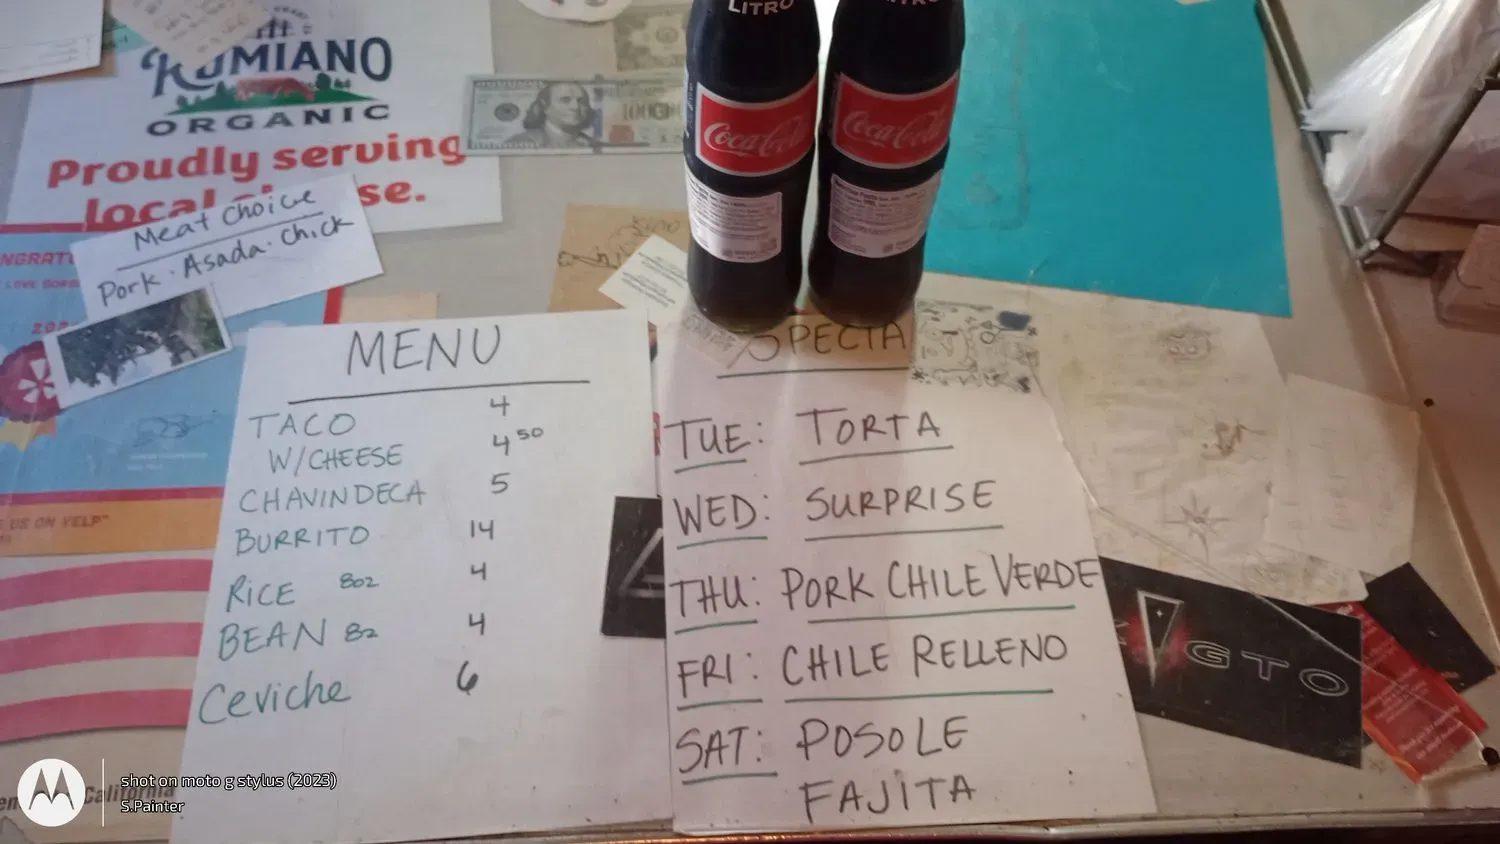 LITRO
RUMIANO
ORGANIC
Proudly serving
local
se.
Coca-Cola
Coca-Cola
100
Meat Choice
Pork · Asada · Chick
NGRAT
MENU
TACO 4
W/CHEESE 4 50
CHAVINDECA 5
BURRITO 14
RICE 8oz 4
BEAN 8z 4
Ceviche 6
SPECIA
TUE: TORTA
WED: SURPRISE
THU: PORK CHILE VERDE
FRI: CHILE RELLENO
SAT: POSOLE
FAJITA
US ON YELP"
GTO
California
shot on moto g stylus (2023)
S.Painter